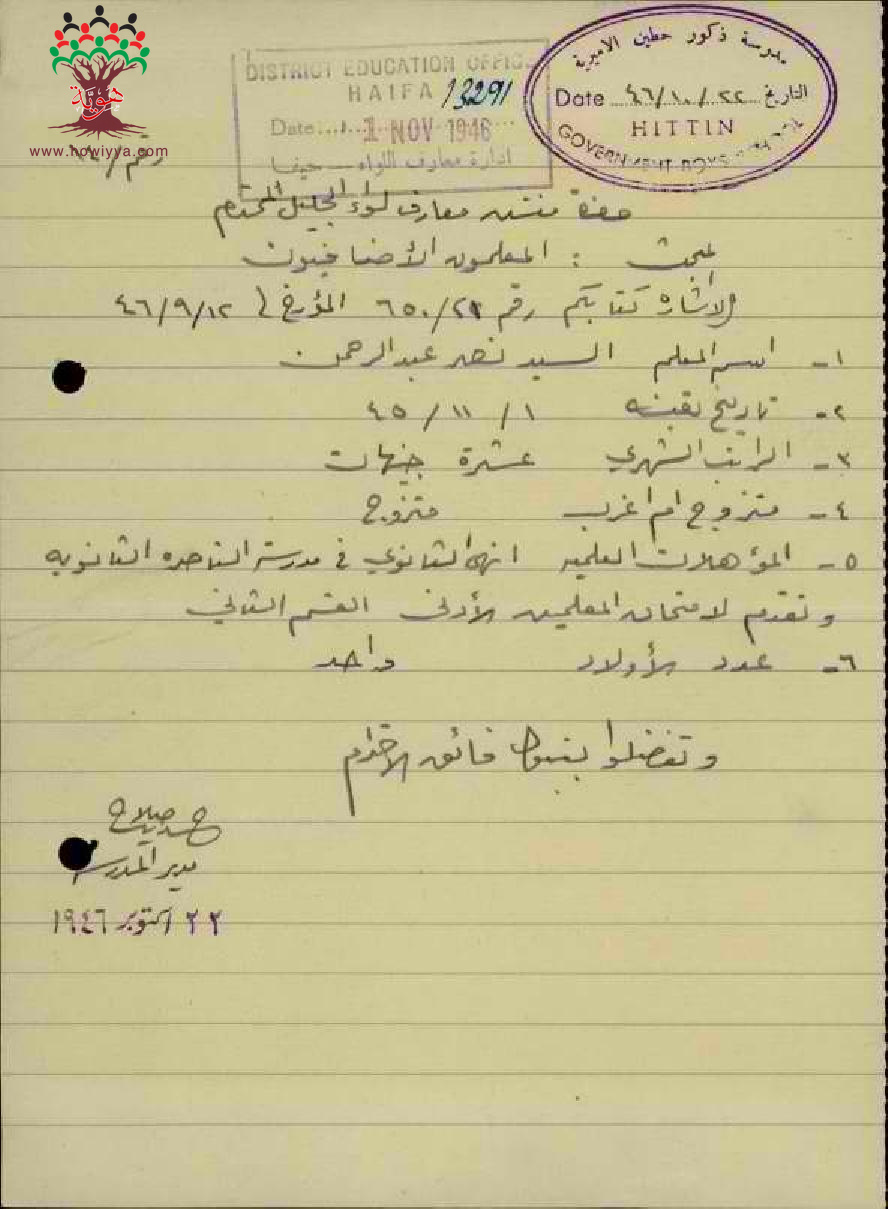 هويّة
www.howiyya.com
DISTRICT EDUCATION OFFICE
HAIFA
13291
Date: 1 NOV 1946
ادارة معارف اللواء - حيفا
مدرسة ذكور حطين الاميرية
Date ٤٦/١٠/٢٢ التاريخ
HITTIN
GOVERNMENT BOYS
رقم
حضرة مفتش معارف لواء الجليل المحترم
مبحث : المعلمون الأضافيون
الاشارة كتابكم رقم ٦٥٠/٢٣ المؤرخ في ٤٦/٩/١٢
١- اسم المعلم السيد نصر عبد الرحمن
٢- تاريخ تعينه ١ / ١١ / ٤٥
٣- الراتب الشهري عشرة جنيهات
٤- متزوج ام اعزب متزوج
٥- المؤهلات العلمية انهى الثانوي في مدرسة الناصره الثانويه
وتقدم لامتحان المعلمين الأدنى القسم الثاني
٦- عدد الأولاد واحد
وتفضلوا بقبول فائق الاحترام
صلاح
مدير المدرسة
٢٢ اكتوبر ١٩٤٦